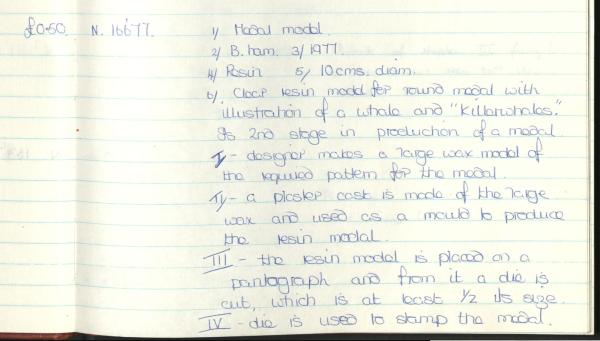 £0.50. N. 16677. 1/ Medal model.
2/ B.ham. 3/ 1977.
4/ Resin 5/ 10cms. diam.
6/. Clear resin model for round medal with
illustration of a whale and "Killerwhales."
Is 2nd stage in production of a medal
I - designer makes a large wax model of
the required pattern for the medal.
II - a plaster cast is made of the large
wax and used as a mould to produce
the resin medal.
III - the resin model is placed on a
pantograph and from it a die is
cut, which is at least 1/2 its size.
IV - die is used to stamp the medal.